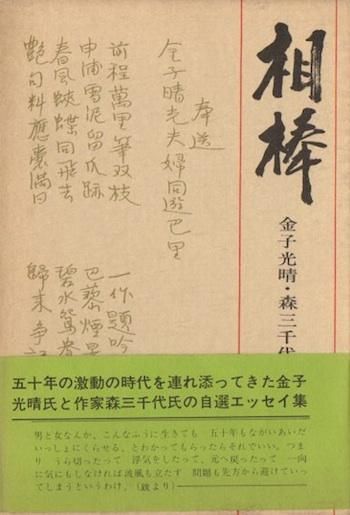 相棒
金子光晴・森三千代
奉送
金子晴光夫婦同遊巴里
前程萬里筆双枝 一作題吟
申浦雪泥留爪跡 巴藜煙
春風蛺蝶同飛去 碧水鴛
艶句料應嚢満日 歸来争
五十年の激動の時代を連れ添ってきた金子
光晴氏と作家森三千代氏の自選エッセイ集
男と女なんか、こんなふうに生きても 五十年もながいあいだ
いっしょにくらせる、とわかってもらったらそれでいい。つま
り うら切ったって 浮気をしたって、元へ戻ったって 一向
に気にもしなければ波風も立たず 問題も先方から避けていっ
てしまうというわけ。(跋より)